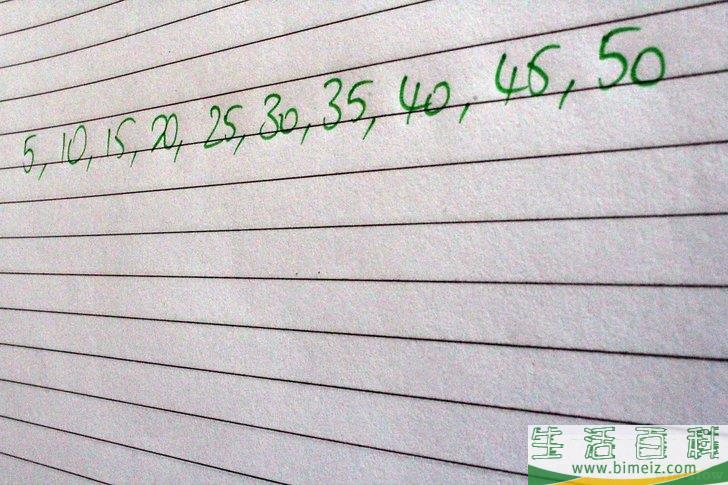 5, 10, 15, 20, 25, 30, 35, 40, 45, 50
生活百科
www.bimeiz.com